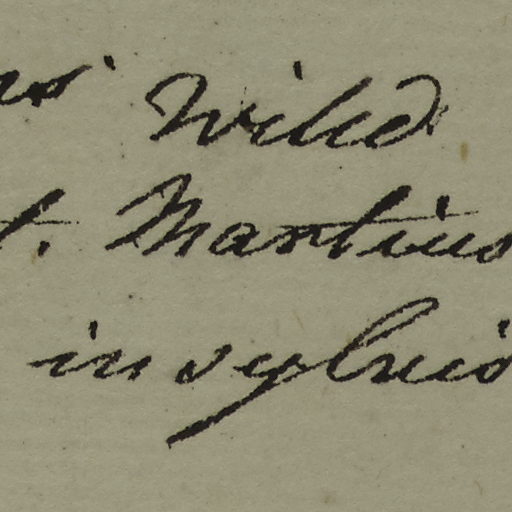 Willd
t. Martius
in sylvis